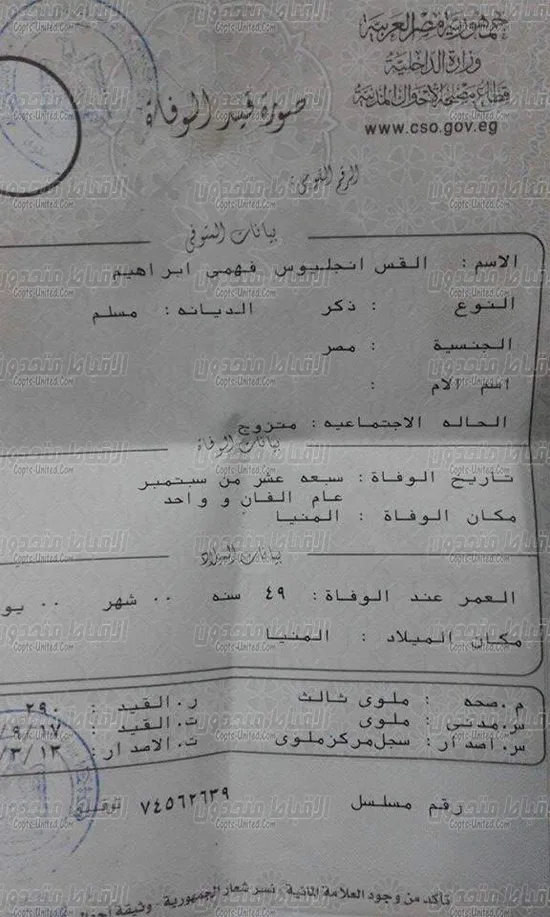 جمهورية مصر العربية
وزارة الداخلية
قطاع مصلحة الأحوال المدنية
www.cso.gov.eg
صورة قيد الوفاة
الرقم القومى :
بيانات المتوفى
الاسم : القس انجليوس فهمى ابراهيم
النوع : ذكر الديانه : مسلم
الجنسية : مصر
اسم الام :
الحاله الاجتماعيه : متزوج
بيانات الوفاة
تاريخ الوفاة : سبعه عشر من سبتمبر
عام الفان و واحد
مكان الوفاة : المنيا
بيانات الميلاد
العمر عند الوفاة : ٤٩ سنه .. شهر .. يو
مكان الميلاد : المنيا
م.صحه : ملوى ثالث ر.القيد : ٢٩٠
س.مدنى : ملوى ت.القيد : /٩/١٧
س.اصدار : سجل مركز ملوى ت.الاصدار : /٣/١٣
رقم مسلسل ٧٤٥٦٢٦٣٩ توقيع
تأكد من وجود العلامة المائية . نسر شعار الجمهورية . وثيقة
الاقباط متحدون
Copts-United.Com